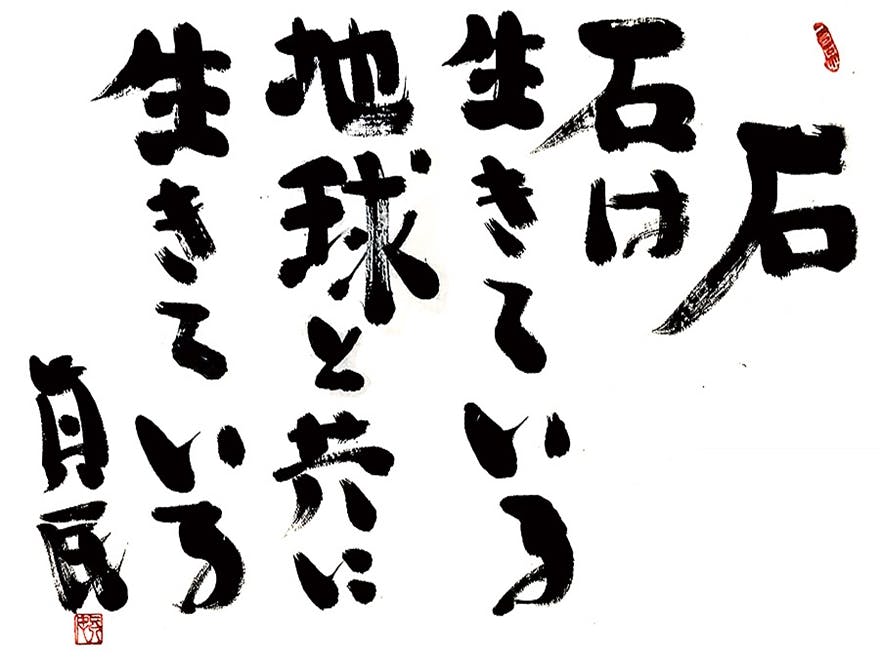 石
石は
生きている
地球と共に
生きている
真民